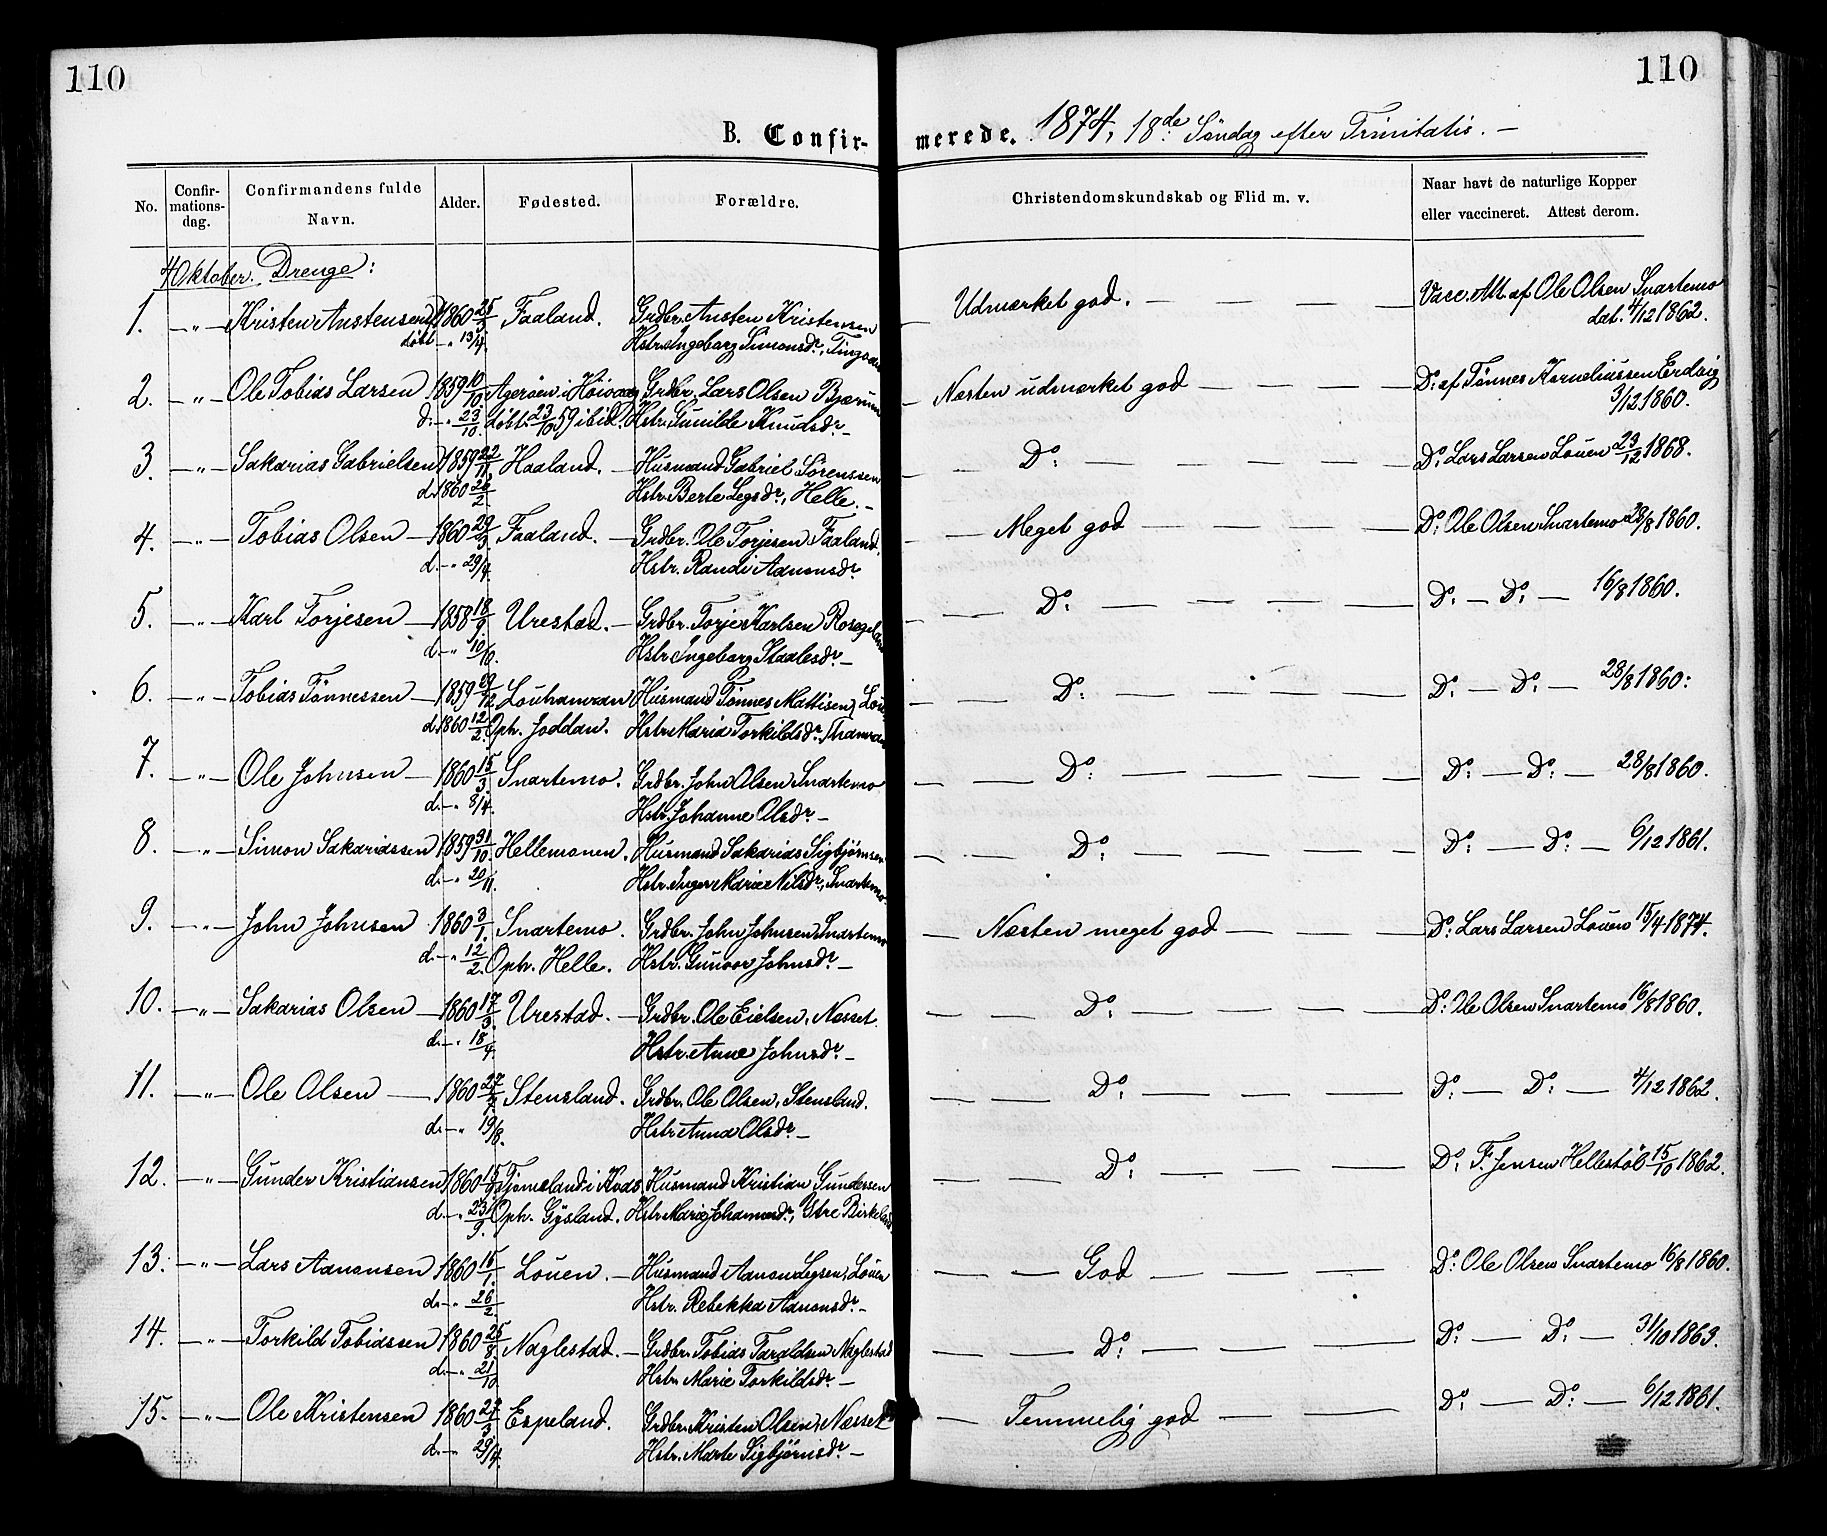 110
110
B. Confir- merede. 1874, 18de Søndag efter Trinitatis. —
No. Confir-mations-dag. Confirmandens fulde Navn. Alder. Fødested. Forældre. Christendomskundskab og Flid m. v. Naar havt de naturlige Kopper eller vaccineret. Attest derom.
4 Oktober. Drenge:
1. — " — Kristen Austensen 1860 25/3 Faaland. Grdbr. Austen Kristensen — Udmærket god. — — — — Vacc. Att. af Ole Olsen Snartemo
døbt — " 13/4. Hstr. Ingeborg Simonsdr., dat. 4/12 1862.
2. — " — Ole Tobias Larsen 1859 10/10 Agerøen i Høivaag Grdbr. Lars Olsen Bjærum — Næsten udmærket god — — — — Do: af Tønnes Korneliussen Erdvig
d. — " 23/10. døbt. 23/10 59 ibid. Hstr. Gunilde Knudsdr. — 3/12 1860.
3. — " — Sakarias Gabrielsen 1859 22/11 Haaland. — Husmand Gabriel Sørenssen — — Do: — — — — Do: Lars Larsen Louen 23/12 1868.
d. 1860 26/2 Hstr. Berte Legsdr., Helle. —
4. — " — Tobias Olsen — 1860 29/3 Faaland. — Grdbr. Ole Torjesen Faaland. — — Meget god — — — — Do: Ole Olsen Snartemo 28/8 1860.
d. — " 29/4. Hstr. Randi Adnonsdr.
5. — " — Karl Torjesen — 1858 18/9. Urestad. — Grdbr. Torje Karlsen — — Do: — — — — Do: — Do: — 16/8 1860.
d. — " 10/10. Hstr. Ingeborg Staalesdr. —
6. — " — Tobias Tønnessen — 1859 29/12 Louhamran Husmand Tønnes Mattisen — — Do: — — — — Do: — Do: — 28/8 1860:
d. 1860 12/2. Oph. Joddan. Hstr. Maria Torkildsdr.
7. — " — Ole Johnsen — 1860 15/3. Snartemo. Grdbr. John Olsen Snartemo — — Do: — — — — Do: — Do: — 28/8 1860.
d. — " 8/4. Hstr. Johanne Olsdr. —
8. — " — Simon Sakariassen 1859 31/10. Hellemonen. Husmand Sakarias Sigbjørnsen — — Do: — — — — Do: — Do: — 6/12 1861.
d. — " 20/11. Hstr. Inger Marie Nilsdr., Snartemo.
9. — " — John Johnsen 1860 3/1. Snartemo. Grdbr. John Johnsen Snartemo — Næsten meget god — — — Do: Lars Larsen Louen 15/4 1874.
d. — " 12/2. Oph. Helle. Hstr. Gunvor Johnsdr. —
10. — " — Sakarias Olsen — 1860 17/3. Urestad. — Grdbr. Ole Eielsen, Næsset. — — — Do: — — — — Do: Ole Olsen Snartemo 16/8 1860.
d. — " 18/4 Hstr. Anne Johnsdr. —
11. — " — Ole Olsen — 1860 27/7. Stensland. Grdbr. Ole Olsen, Stensland. — — — Do: — — — — Do: — Do: — 4/12 1862.
d. — " 19/8. Hstr. Anna Olsdr. —
12. — " — Gunder Kristiansen 1860 Tjomsland i Kvås, Husmand Kristian Gundersen — — — Do: — — — — Do: F. Jensen Hellestøl 15/10 1862.
d. — " 23/9. Oph. Gysland. Hstr. Marie Johannesdr., Ytre Birkeland
13. — " — Lars Adnonsen 1860 15/1. Louen. — Husmand Adnon Legsen, Louen — — God — — — — Do: Ole Olsen Snartemo 16/8 1860.
d. — " 26/2. Hstr. Rebekka Adnonsdr. —
14. — " — Torkild Tobiassen 1860 25/8. Naglestad. — Grdbr. Tobias Taraldsen Naglestad — — — Do: — — — — Do: — Do: — 31/10 1863.
d. — " 21/10 Hstr. Marie Torkildsdr. —
15. — " — Ole Kristensen 1860 27/3 Espeland. Grdbr. Kristen Olsen, Næsset — Temmelig god — — — Do: — Do: — 6/12 1861.
d. — 29/4. Hstr. Marte Sigbjørnsdr. —